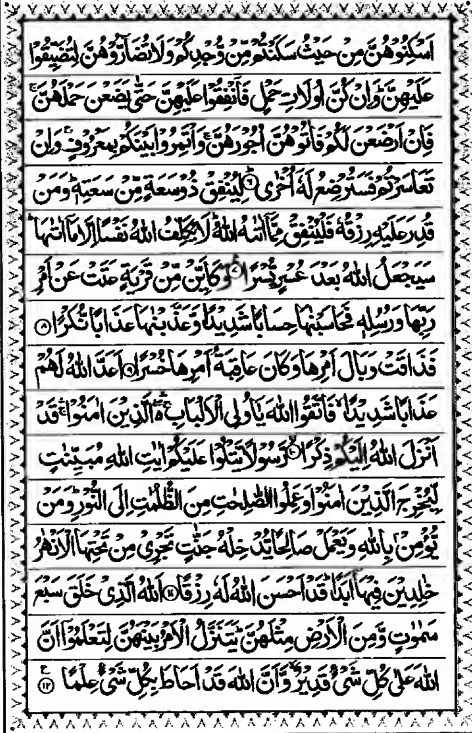 اَسْكِنُوْهُنَّ مِنْ حَيْثُ سَكَنْتُمْ مِّنْ وُّجْدِكُمْ وَلَا تُضَآرُّوْهُنَّ لِتُضَيِّقُوْا
عَلَيْهِنَّ ؕ وَاِنْ كُنَّ اُولَاتِ حَمْلٍ فَاَنْفِقُوْا عَلَيْهِنَّ حَتّٰى يَضَعْنَ حَمْلَهُنَّ ۚ
فَاِنْ اَرْضَعْنَ لَكُمْ فَاٰتُوْهُنَّ اُجُوْرَهُنَّ ۚ وَاْتَمِرُوْا بَيْنَكُمْ بِمَعْرُوْفٍ ۚ وَاِنْ
تَعَاسَرْتُمْ فَسَتُرْضِعُ لَهٗۤ اُخْرٰى ۶ لِيُنْفِقْ ذُوْ سَعَةٍ مِّنْ سَعَتِهٖ ؕ وَمَنْ
قُدِرَ عَلَيْهِ رِزْقُهٗ فَلْيُنْفِقْ مِمَّاۤ اٰتٰىهُ اللّٰهُ ؕ لَا يُكَلِّفُ اللّٰهُ نَفْسًا اِلَّا مَاۤ اٰتٰىهَا ؕ
سَيَجْعَلُ اللّٰهُ بَعْدَ عُسْرٍ يُّسْرًا ۷ وَكَاَيِّنْ مِّنْ قَرْيَةٍ عَتَتْ عَنْ اَمْرِ
رَبِّهَا وَرُسُلِهٖ فَحَاسَبْنٰهَا حِسَابًا شَدِيْدًا وَّعَذَّبْنٰهَا عَذَابًا نُّكْرًا ۸
فَذَاقَتْ وَبَالَ اَمْرِهَا وَكَانَ عَاقِبَةُ اَمْرِهَا خُسْرًا ۹ اَعَدَّ اللّٰهُ لَهُمْ
عَذَابًا شَدِيْدًا ۙ فَاتَّقُوا اللّٰهَ يٰۤاُولِى الْاَلْبَابِ ۛۖ الَّذِيْنَ اٰمَنُوْا ۛۚ قَدْ
اَنْزَلَ اللّٰهُ اِلَيْكُمْ ذِكْرًا ۱۰ رَّسُوْلًا يَّتْلُوْا عَلَيْكُمْ اٰيٰتِ اللّٰهِ مُبَيِّنٰتٍ
لِّيُخْرِجَ الَّذِيْنَ اٰمَنُوْا وَعَمِلُوا الصّٰلِحٰتِ مِنَ الظُّلُمٰتِ اِلَى النُّوْرِ ؕ وَمَنْ
يُّؤْمِنْۢ بِاللّٰهِ وَيَعْمَلْ صَالِحًا يُّدْخِلْهُ جَنّٰتٍ تَجْرِىْ مِنْ تَحْتِهَا الْاَنْهٰرُ
خٰلِدِيْنَ فِيْهَاۤ اَبَدًا ؕ قَدْ اَحْسَنَ اللّٰهُ لَهٗ رِزْقًا ۱۱ اَللّٰهُ الَّذِىْ خَلَقَ سَبْعَ
سَمٰوٰتٍ وَّمِنَ الْاَرْضِ مِثْلَهُنَّ ؕ يَتَنَزَّلُ الْاَمْرُ بَيْنَهُنَّ لِتَعْلَمُوْۤا اَنَّ
اللّٰهَ عَلٰى كُلِّ شَىْءٍ قَدِيْرٌ ۙ وَّاَنَّ اللّٰهَ قَدْ اَحَاطَ بِكُلِّ شَىْءٍ عِلْمًا ۱۲